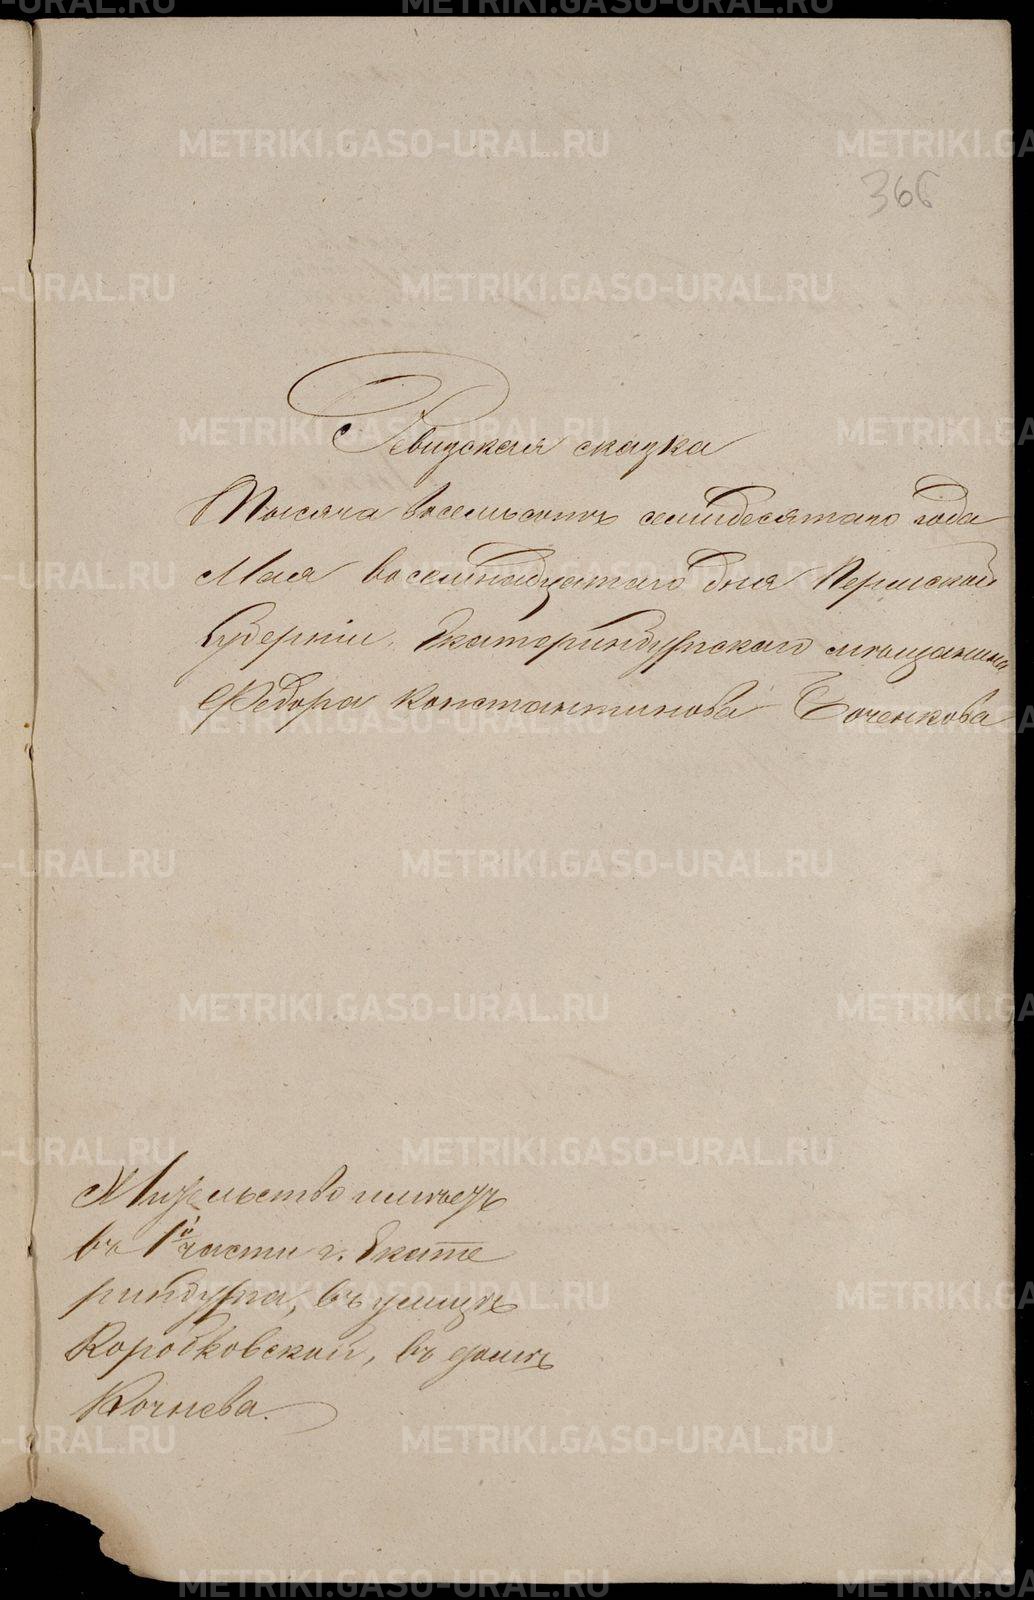 366
Ревизская сказка
Тысяча восемьсотъ семидесятаго года
Мая восемнадцатаго дня Пермской
Губерніи, Екатеринбургскаго мѣщанина
Федора Константинова Боченкова
Жительство имѣетъ
въ 1й части г. Екате
ринбурга, въ улицѣ
Коробковской, въ домѣ
Кочнева.
METRIKI.GASO-URAL.RU